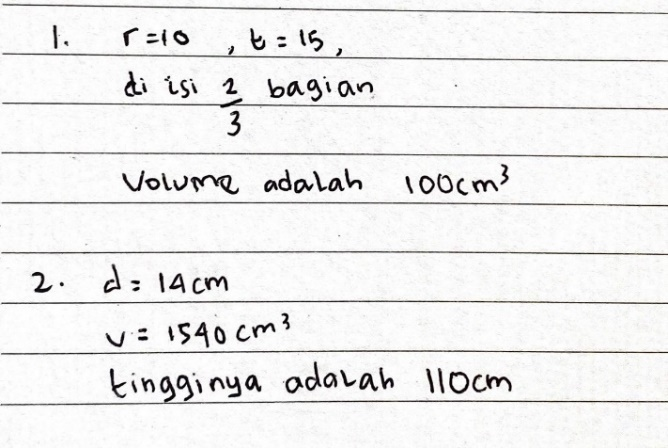 1. r=10 , t = 15,
di isi 2/3 bagian
Volume adalah 100cm³
2. d = 14cm
v = 1540 cm³
tingginya adalah 110cm